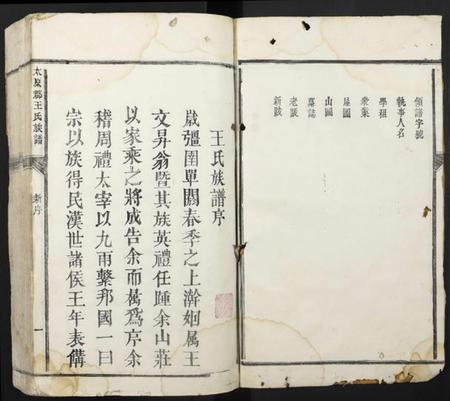 領譜字號
執事人名
學租
衆業
屋圖
山圖
墓誌
老跋
新跋
王氏族譜序
歲彊圉單閼春季之上澣姻属王
文昇翁暨其族英禮任踵余山莊
以家乘之將成告余而属爲序余
稽周禮太宰以九兩繫邦國一曰
宗以族得民漢世諸侯王年表儁
太原郡王氏族譜
新序
一